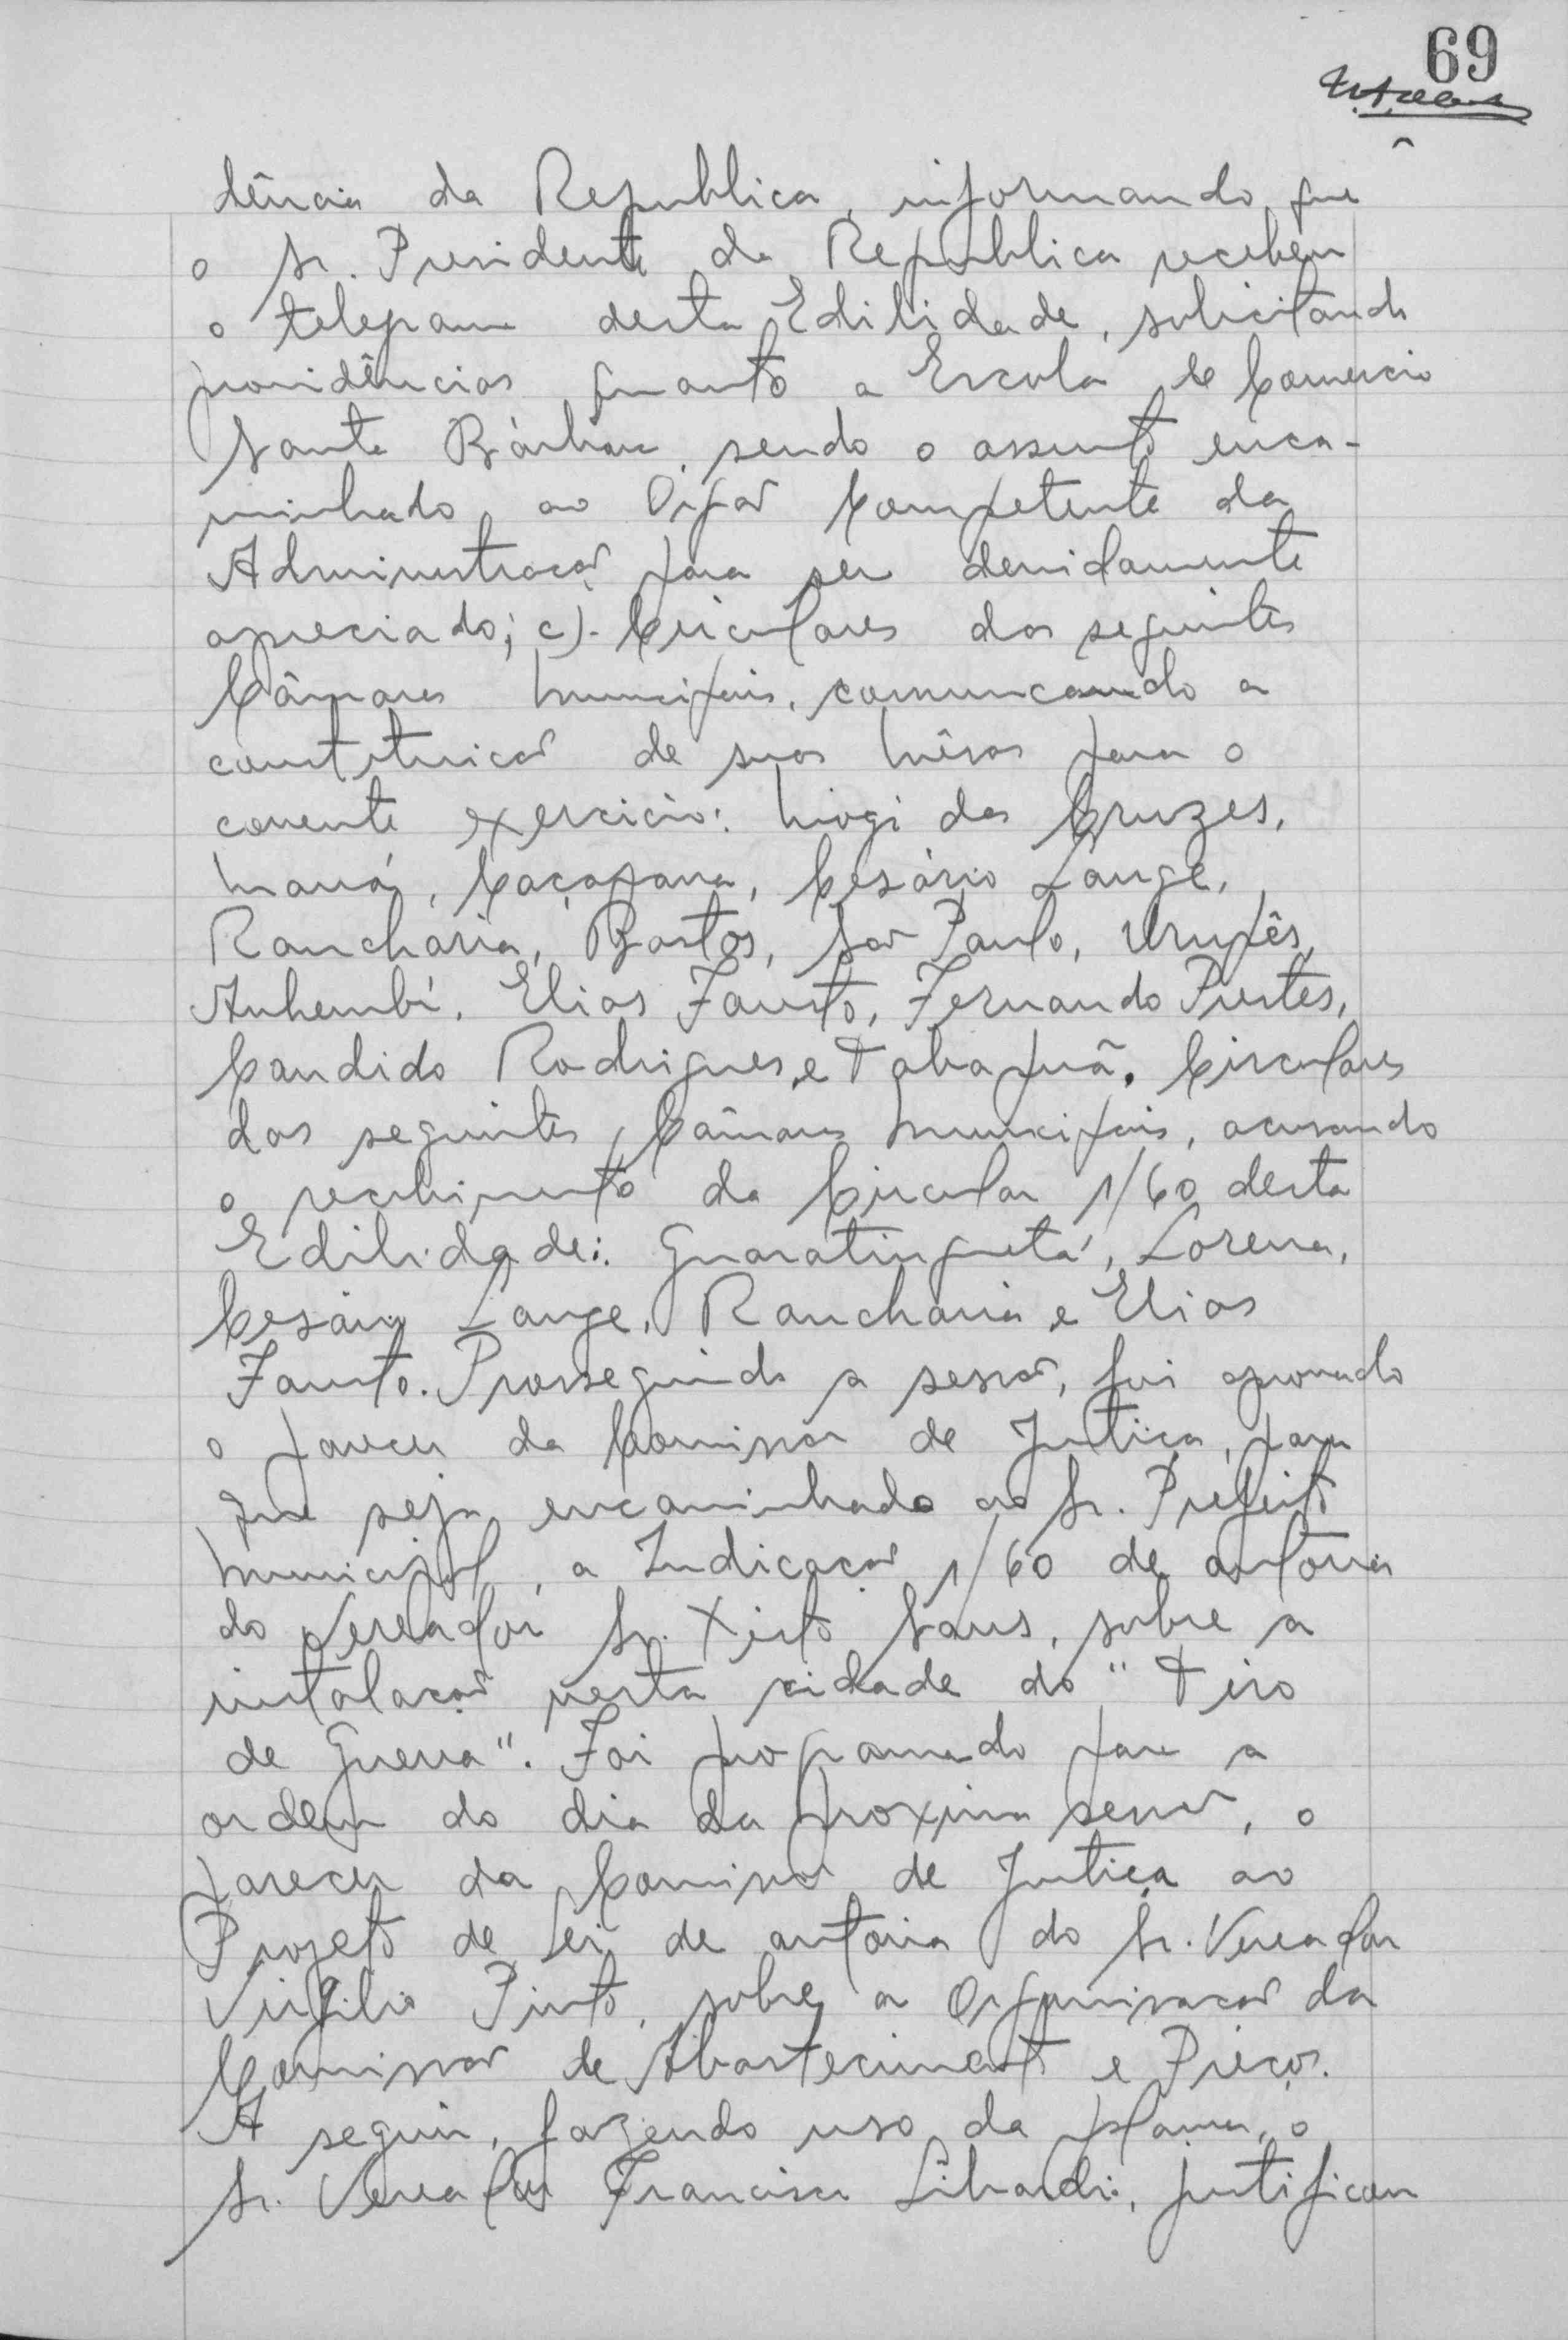 69
dência da Republica, informando que
o Sr. Presidente da Republica recebeu
o telegrama desta Edilidade, solicitando
providências quanto a Escola de Comercio
Santa Bárbara, sendo o assunto enca-
minhado ao Orgão Competente da
Administração para ser devidamente
apreciado; c).- Circulares das seguintes
Câmaras Municipais, comunicando a
constituicão de suas Mêsas para o
corrente exercicio: Mogi das Cruzes,
Mauá, Caçapava, Cesário Lange,
Rancharia, Bastos, São Paulo, Urupês,
Anhembí, Elias Fausto, Fernando Prestes,
Candido Rodrigues, e Tabapuã. Circulares
das seguintes Câmaras Municipais, acusando
o recebimento da Circular 1/60 desta
Edilidade: Guaratinguetá, Lorena,
Cesário Lange, Rancharia e Elias
Fausto. Prosseguindo a sessão, foi aprovado
o parecer da Comissão de Justiça, para
que seja encaminhado ao Sr. Prefeito
Municipal, a Indicação 1/60 de autoria
do Vereador Sr. Xisto Sans, sobre a
instalação nesta cidade do "Tiro
de Guerra". Foi programado para a
ordem do dia da proxima sessão, o
parecer da Comissão de Justiça ao
Projeto de Lei de autoria do Sr. Vereador
Virgilio Pinto, sobre a Organisação da
Comissão de Abastecimento e Preços.
A seguir, fazendo uso da palavra, o
Sr. Vereador Francisco Libardi, justificou